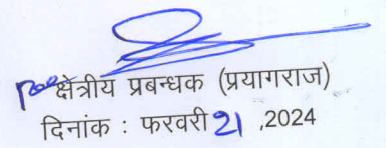 क्षेत्रीय प्रबन्धक (प्रयागराज)
दिनांक : फरवरी 21 ,2024